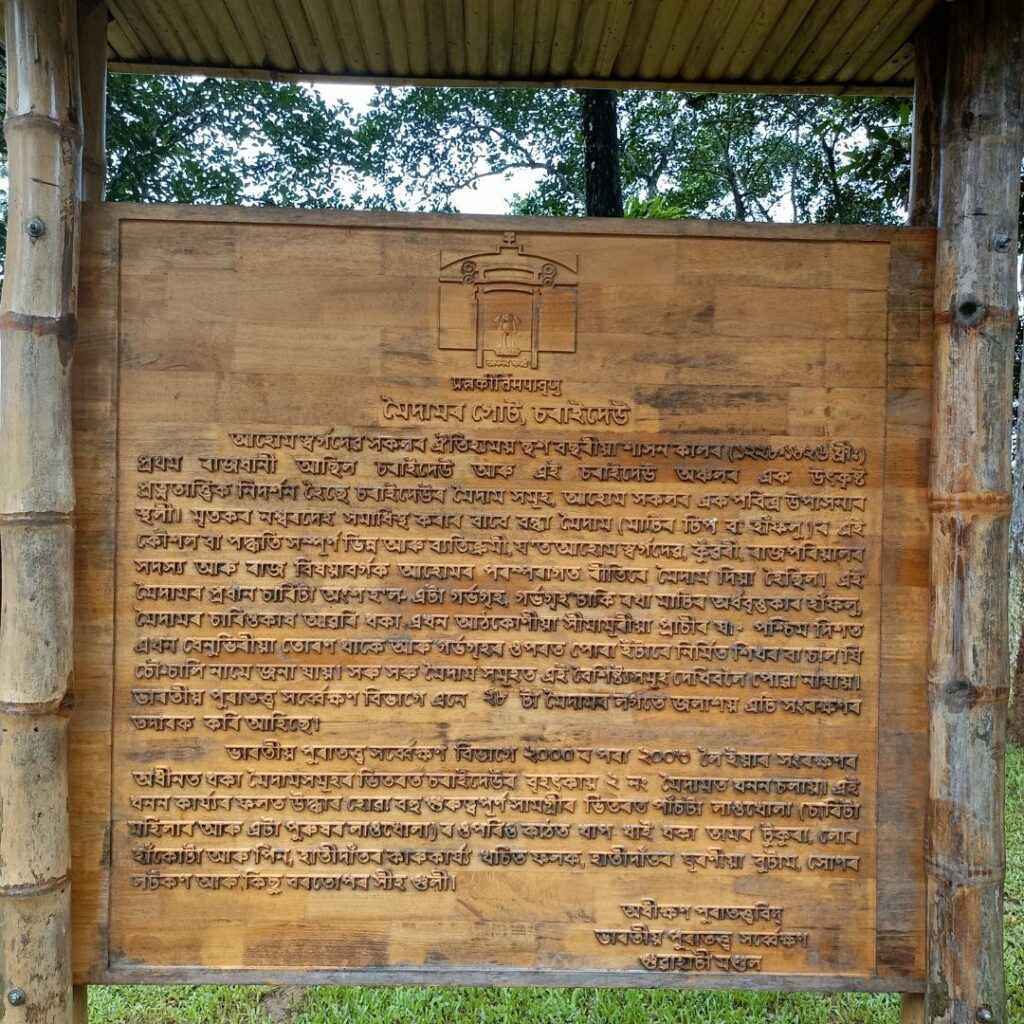 प्रत्नकीर्तिमपावृणु
মৈদামৰ গোট, চৰাইদেউ
আহোম স্বৰ্গদেৱ সকলৰ ঐতিহ্যময় ছশ বছৰীয়া শাসন কালৰ (১২২৮-১৮২৬ খ্ৰীঃ)
প্ৰথম ৰাজধানী আছিল চৰাইদেউ আৰু এই চৰাইদেউ অঞ্চলৰ এক উৎকৃষ্ট
প্ৰত্নতাত্ত্বিক নিদৰ্শন হৈছে চৰাইদেউৰ মৈদাম সমূহ, আহোম সকলৰ এক পবিত্ৰ উপাসনাৰ
স্থলী। মৃতকৰ নশ্বৰদেহ সমাধিস্থ কৰাৰ বাবে বন্ধা মৈদাম (মাটিৰ টিপ বা হাঁফলু)ৰ এই
কৌশল বা পদ্ধতি সম্পূৰ্ণ ভিন্ন আৰু ব্যতিক্ৰমী, য'ত আহোম স্বৰ্গদেৱ, কুঁৱৰী, ৰাজপৰিয়ালৰ
সদস্য আৰু ৰাজ বিষয়াবৰ্গক আহোমৰ পৰম্পৰাগত ৰীতিৰে মৈদাম দিয়া হৈছিল। এই
মৈদামৰ প্ৰধান চাৰিটা অংশ হ'ল- এটা গৰ্ভগৃহ, গৰ্ভগৃহ ঢাকি ৰখা মাটিৰ অৰ্ধবৃত্তকাৰ হাঁফলু,
মৈদামৰ চাৰিওকাষ আৱৰি থকা এখন আঠকোণীয়া সীমামূৰীয়া প্ৰাচীৰ যা - পশ্চিম দিশত
এখন ধেনুভিৰীয়া তোৰণ থাকে আৰু গৰ্ভগৃহৰ ওপৰত পোৰা ইটাৰে নিৰ্মিত শিখৰ বা চাল যি
চৌ-চালি নামে জনা যায়। সৰু সৰু মৈদাম সমূহত এই বৈশিষ্ট্যসমূহ দেখিবলৈ পোৱা নাযায়।
ভাৰতীয় পুৰাতত্ত্ব সৰ্ব্বেক্ষণ বিভাগে এনে ২৮ টা মৈদামৰ লগতে জলাশয় এটি সংৰক্ষণৰ
তদাৰক কৰি আহিছে।
ভাৰতীয় পুৰাতত্ত্ব সৰ্ব্বেক্ষণ বিভাগে ২০০০ ৰ পৰা ২০০৩ লৈ ইয়াৰ সংৰক্ষণৰ
অধীনত থকা মৈদামসমূহৰ ভিতৰত চৰাইদেউৰ বৃহৎকায় ২ নং মৈদামত খনন চলায়। এই
খনন কাৰ্য্যৰ ফলত উদ্ধাৰ হোৱা বহু গুৰুত্বপূৰ্ণ সামগ্ৰীৰ ভিতৰত পাঁচটা লাওখোলা (চাৰিটা
মহিলাৰ আৰু এটা পুৰুষৰ লাওখোলা)ৰ ওপৰিও কাঠত খাপ খাই থকা তামৰ টুকুৰা, লোৰ
হাঁকোটা আৰু পিন, হাতীদাঁতৰ কাৰুকাৰ্য্য খচিত ফলক, হাতীদাঁতৰ ঘূৰণীয়া বুটাম, সোণৰ
লটকণ আৰু কিছু বৰতোপৰ সীহ গুলী।
অধীক্ষণ পুৰাতত্ত্ববিদ্
ভাৰতীয় পুৰাতত্ত্ব সৰ্ব্বেক্ষণ
গুৱাহাটী মণ্ডল